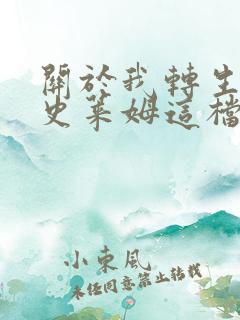 關於我轉生
史萊姆這檔
小東風
未經同意禁止轉載